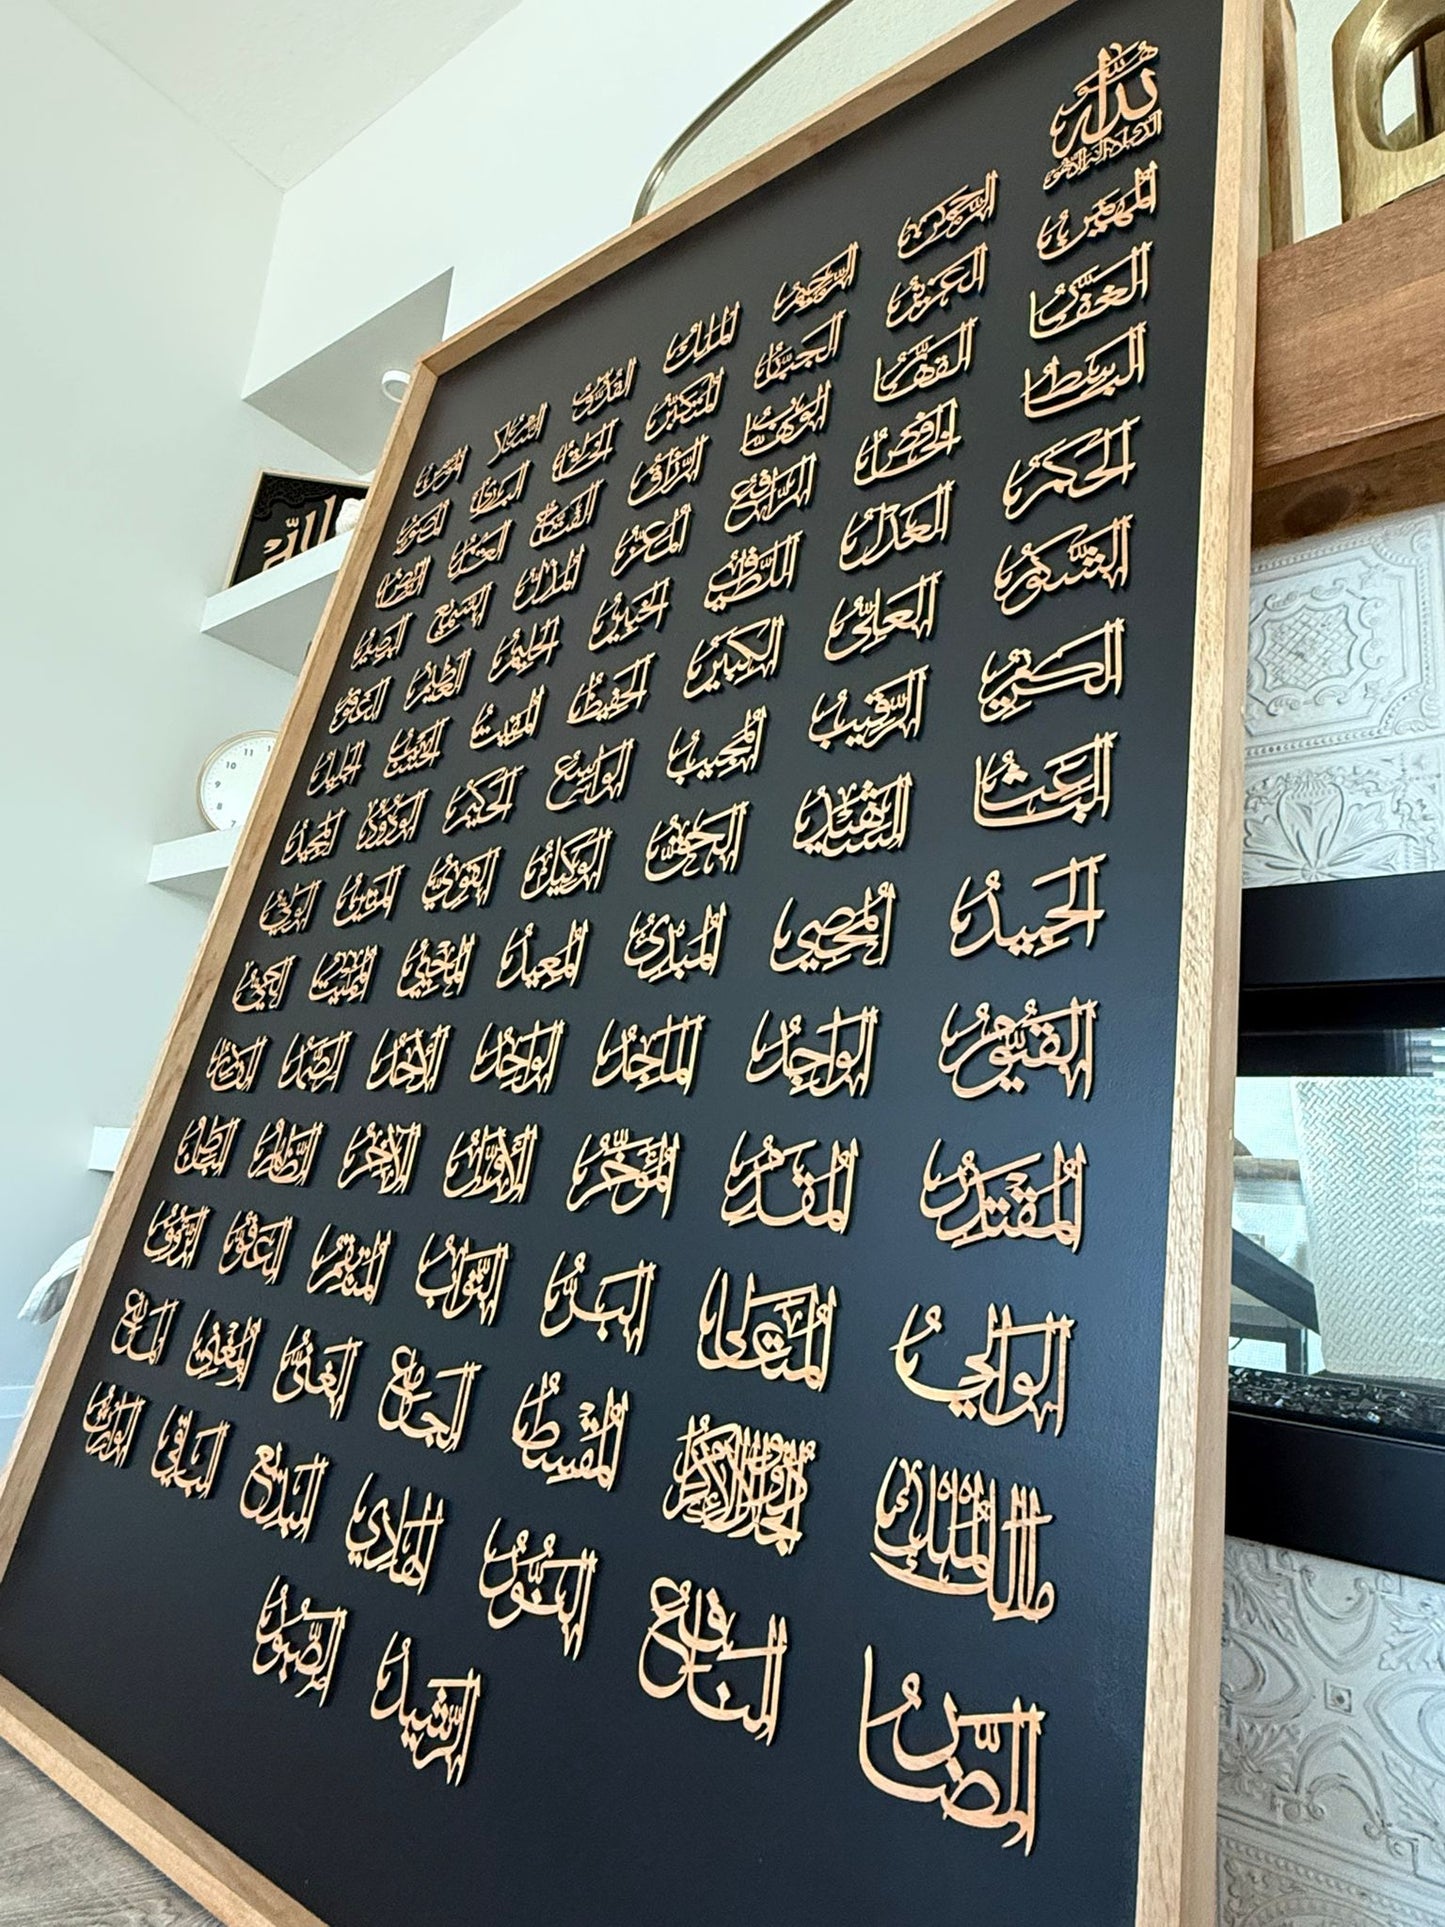 هُوَ اللهُ الذي لا إله إلا هو الرحمن الرحيم الملك القدوس السلام المؤمن
المهيمن العزيز الجبار المتكبر الخالق البارئ المصور
الغفار القهار الوهاب الرزاق الفتاح العليم القابض
الباسط الخافض الرافع المعز المذل السميع البصير
الحكم العدل اللطيف الخبير الحليم العظيم الغفور
الشكور العلي الكبير الحفيظ المقيت الحسيب الجليل
الكريم الرقيب المجيب الواسع الحكيم الودود المجيد
الباعث الشهيد الحق الوكيل القوي المتين الولي
الحميد المحصي المبدئ المعيد المحيي المميت الحي
القيوم الواجد الماجد الواحد الأحد الصمد القادر
المقتدر المقدم المؤخر الأول الآخر الظاهر الباطن
الوالي المتعالي البر التواب المنتقم العفو الرؤوف
مالك الملك ذو الجلال والإكرام المقسط الجامع الغني المغني المانع
الضار النافع النور الهادي البديع الباقي الوارث
الرشيد الصبور
الله
11
10
9
8
7